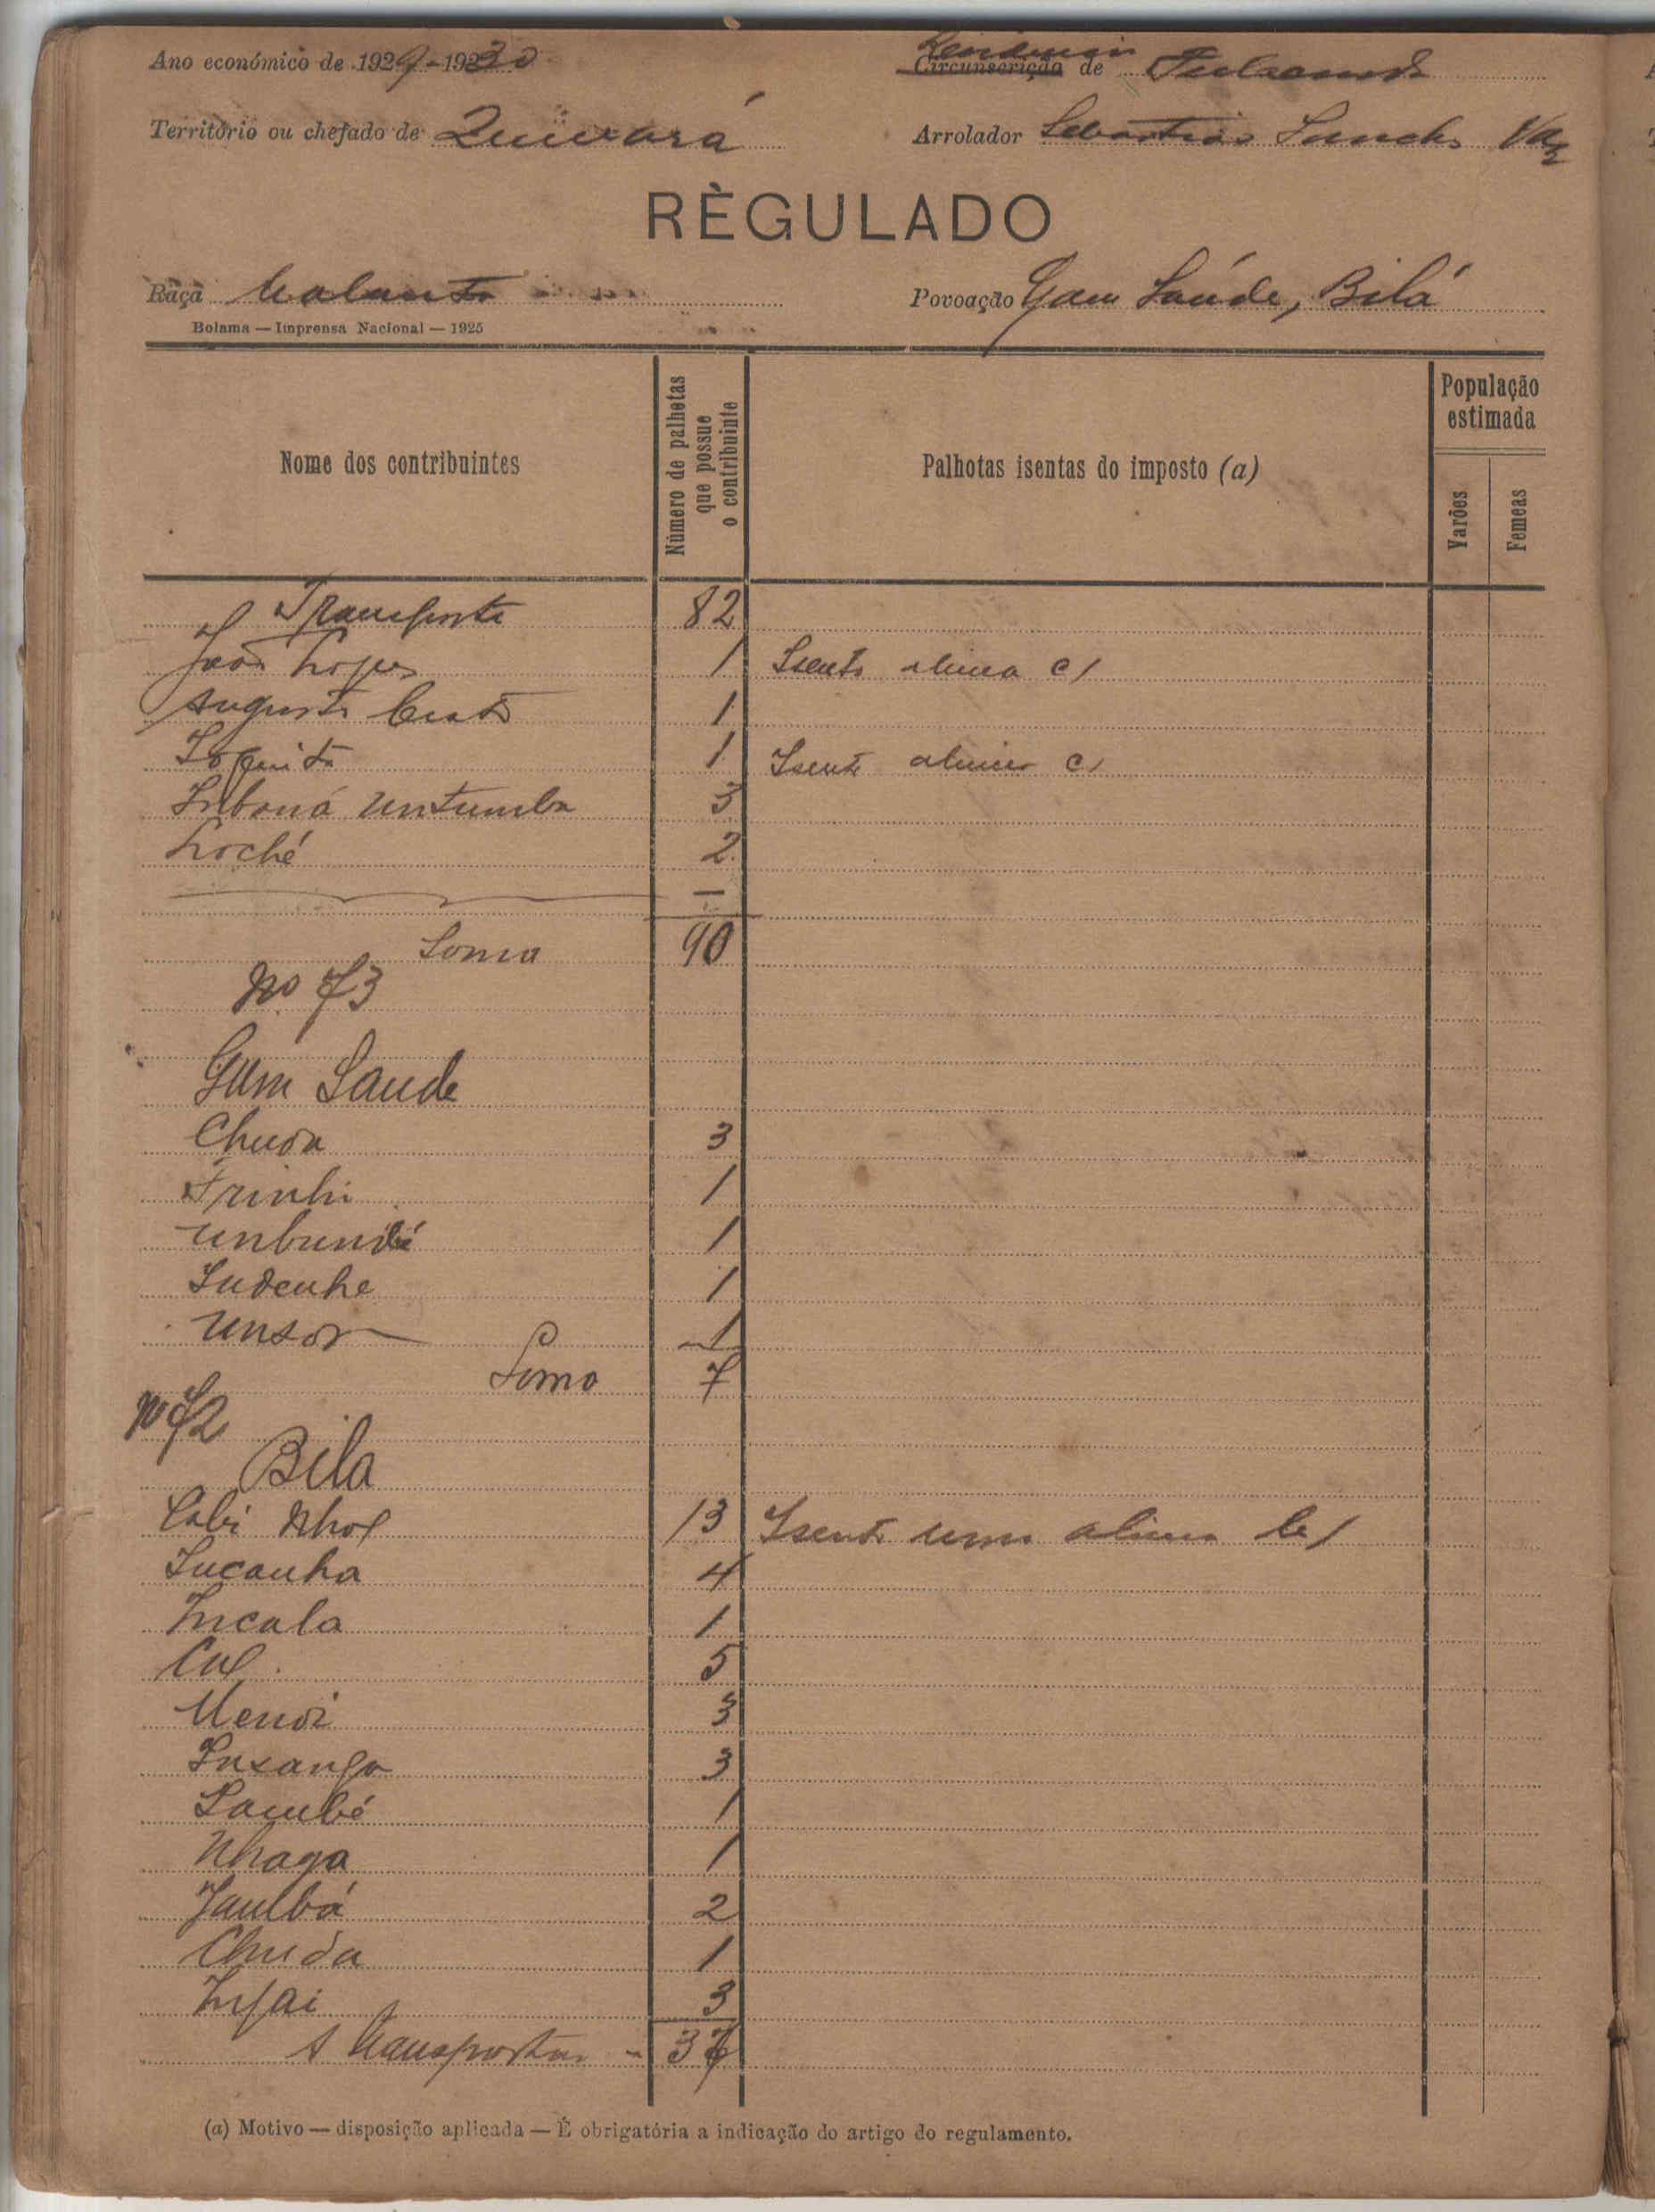 Ano económico de 1929-1930
Residencia
Circunscrição de
Território ou chefado de Quinará
Arrolador Sebastião Sanches Vaz
RÈGULADO
Raça Balanta
Povoação Gam Saúde, Bilá
Bolama — Imprensa Nacional — 1925
Nome dos contribuintes
Número de palhetas que possue o contribuinte
Palhotas isentas do imposto (a)
População estimada
Varões
Femeas
Transporte 82
João Lopes 1 Isento alinea c/
Augusto 1
1 Isento alinea c/
Untumba 3
Loché 2
Soma 90
No 73
Gam Saude
Chuda 3
1
1
Indenhe 1
Unsor 1
Soma 7
No 72
Bila
Cabi Nhof 13 Isento uma alinea
Incanha 4
Incala 1
5
3
Insanga 3
1
Nhaga 1
2
Chuda 1
Infai 3
A transportar - 37
(a) Motivo — disposição aplicada — É obrigatória a indicação do artigo do regulamento.